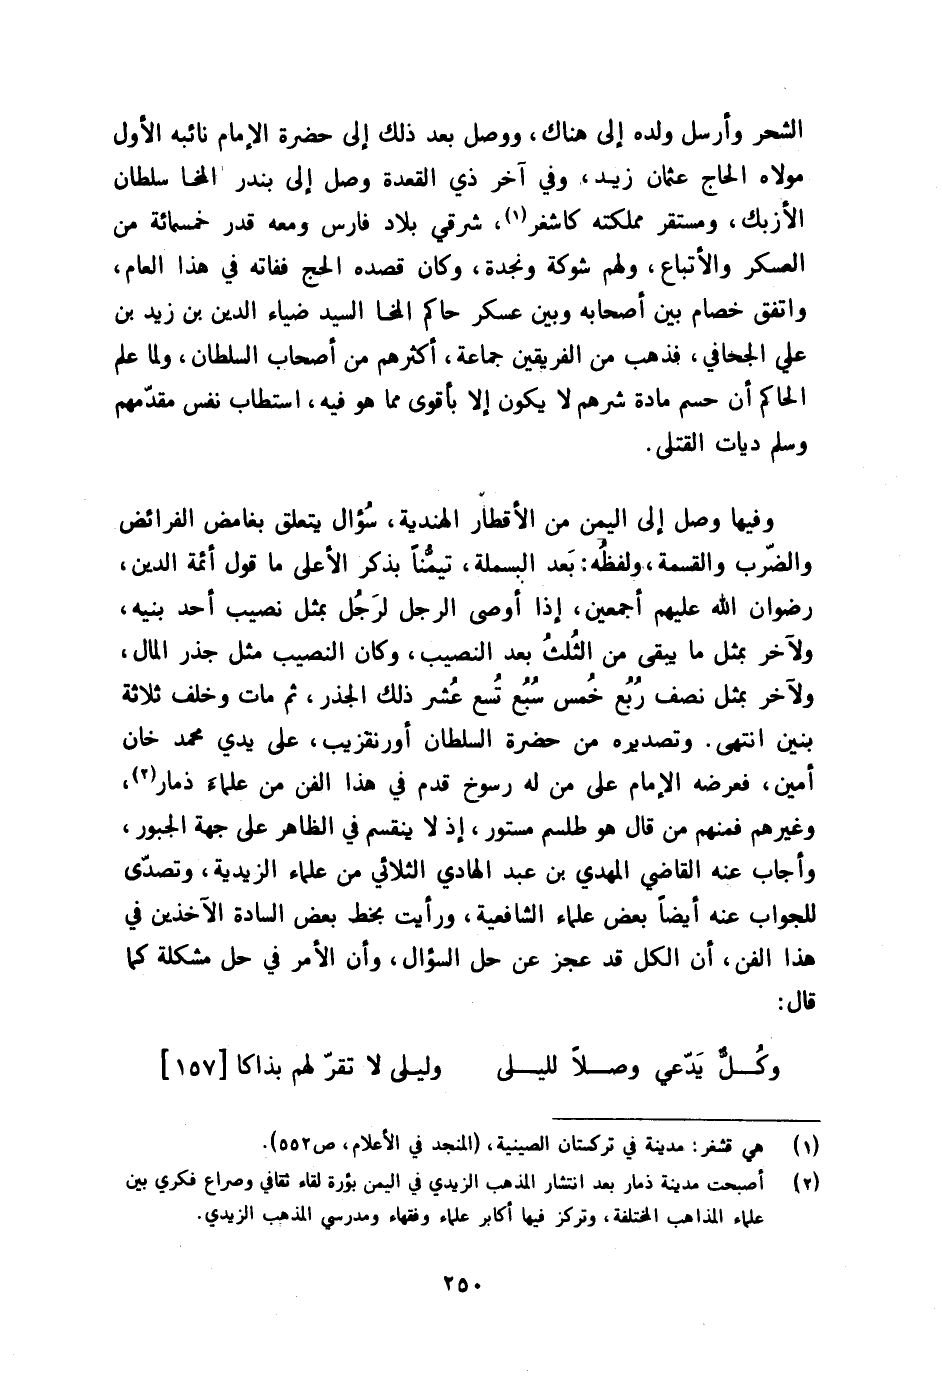 الشحر وأرسل ولده إلى هناك، ووصل بعد ذلك إلى حضرة الإمام نائبه الأول
مولاه الحاج عثمان زيد، وفي آخر ذي القعدة وصل إلى بندر المخا سلطان
الأزبك، ومستقر مملكته كاشغر(١)، شرقي بلاد فارس ومعه قدر خمسمائة من
العسكر والأتباع، ولهم شوكة ونجدة، وكان قصده الحج ففاته في هذا العام،
واتفق خصام بين أصحابه وبين عسكر حاكم المخا السيد ضياء الدين بن زيد بن
علي الجحافي، فذهب من الفريقين جماعة، أكثرهم من أصحاب السلطان، ولما علم
الحاكم أن حسم مادة شرهم لا يكون إلا بأقوى مما هو فيه، استطاب نفس مقدّمهم
وسلم ديات القتلى.
وفيها وصل إلى اليمن من الأقطار الهندية، سُؤال يتعلق بغامض الفرائض
والضّرب والقسمة، ولفظُه: بَعد البسملة، تيمُّناً بذكر الأعلى ما قول أئمة الدين،
رضوان الله عليهم أجمعين، إذا أوصى الرجل لرَجُل بمثل نصيب أحد بنيه،
ولآخر بمثل ما يبقى من الثُلثُ بعد النصيب، وكان النصيب مثل جذر المال،
ولآخر بمثل نصف رُبُع خُمس سُبُع تُسع عُشر ذلك الجذر، ثم مات وخلف ثلاثة
بنين انتهى. وتصديره من حضرة السلطان أورنقزيب، على يدي محمد خان
أمين، فعرضه الإمام على من له رسوخ قدم في هذا الفن من علماء ذمار(٢)،
وغيرهم فمنهم من قال هو طلسم مستور، إذ لا ينقسم في الظاهر على جهة الجبور،
وأجاب عنه القاضي المهدي بن عبد الهادي الثلائي من علماء الزيدية، وتصدّى
للجواب عنه أيضاً بعض علماء الشافعية، ورأيت بخط بعض السادة الآخذين في
هذا الفن، أن الكل قد عجز عن حل السؤال، وأن الأمر في حل مشكلة كما
قال:
وكُـــلٌّ يَدّعي وصـــلاً لليـــلى وليلى لا تقرّ لهم بذاكا [١٥٧]
(١) هي قشغر: مدينة في تركستان الصينية، (المنجد في الأعلام، ص٥٥٢).
(٢) أصبحت مدينة ذمار بعد انتشار المذهب الزيدي في اليمن بؤرة لقاء ثقافي وصراع فكري بين
علماء المذاهب المختلفة، وتركز فيها أكابر علماء وفقهاء ومدرسي المذهب الزيدي.
٢٥٠